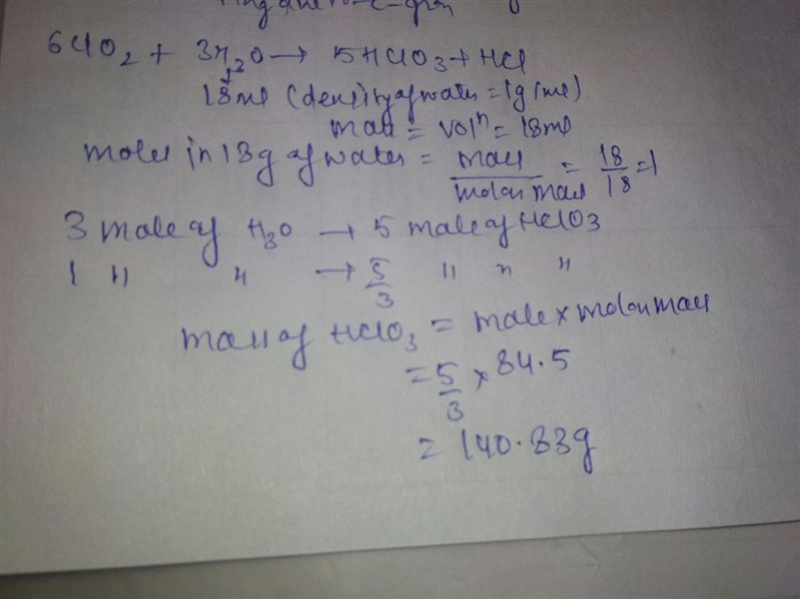 6ClO2 + 3H2O → 5HClO3 + HCl
18ml (density of water = 1g/ml)
mass = volⁿ = 18ml
moles in 18g of water = mass/molar mass = 18/18 = 1
3 mole of H2O → 5 mole of HClO3
1 " " → 5/3 " " "
mass of HClO3 = mole × molar mass
= 5/3 × 84.5
= 140.83g